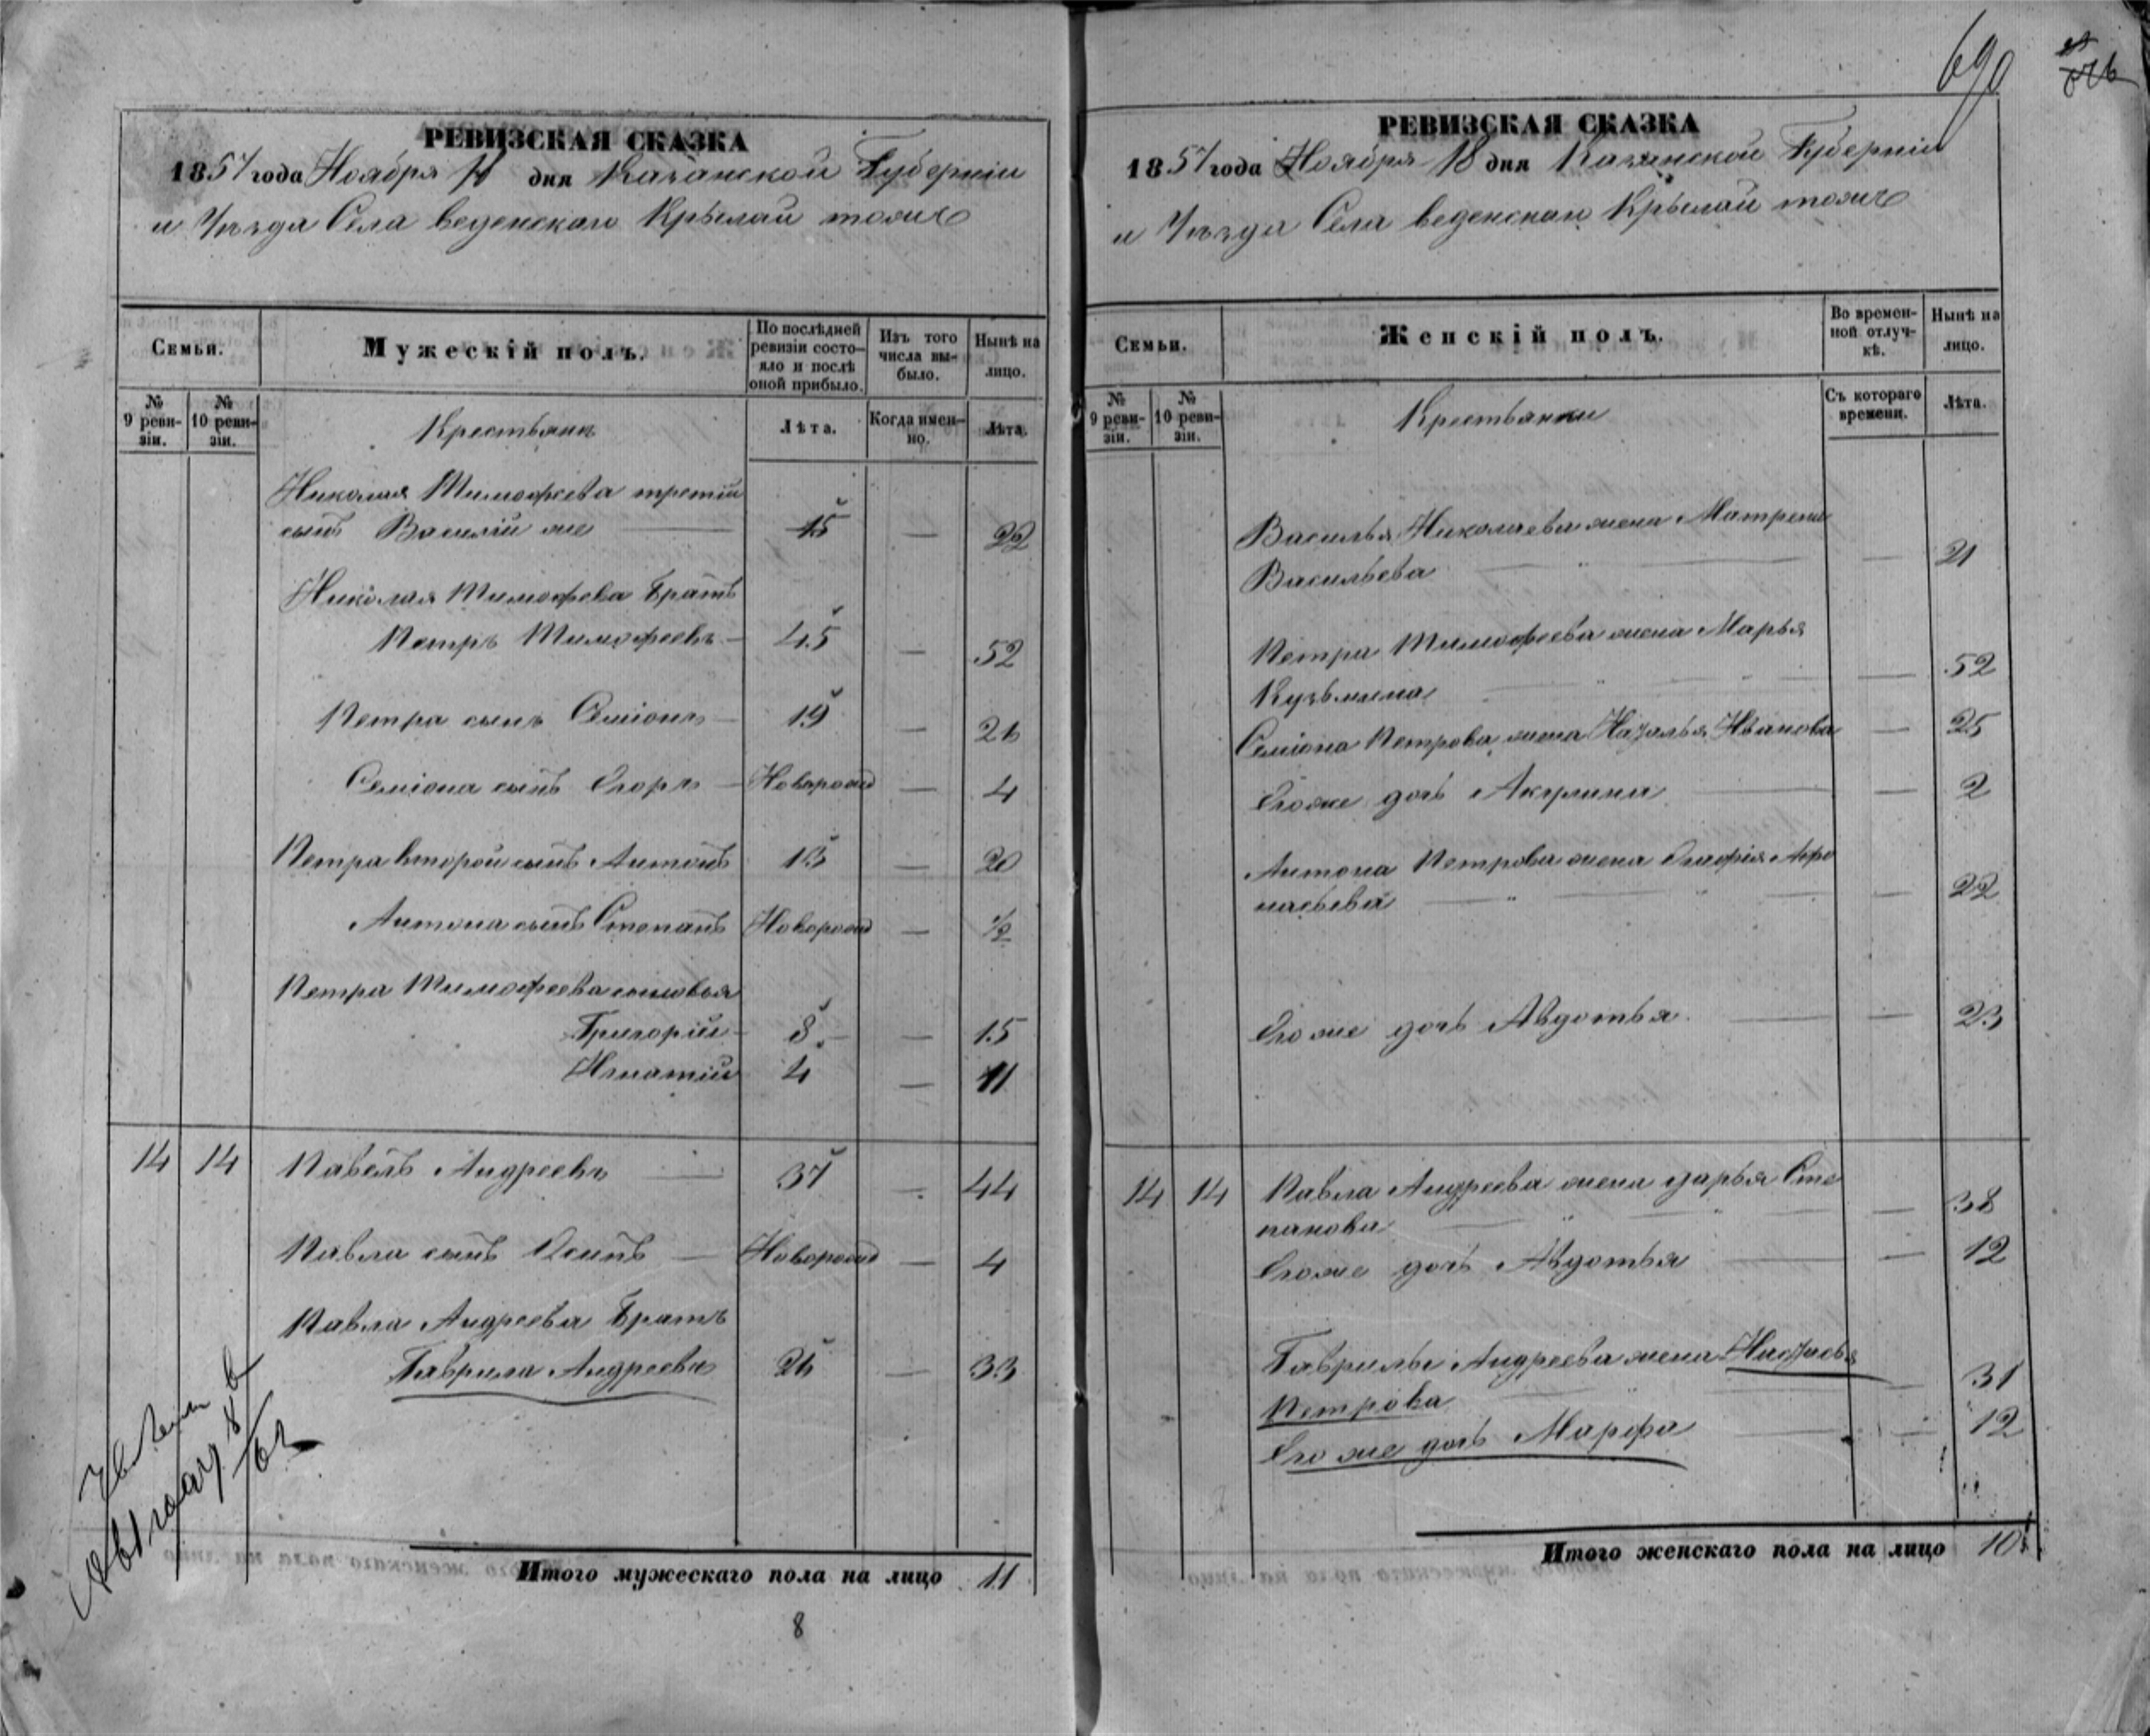 РЕВИЗСКАЯ СКАЗКА
1857 года Ноября дня Казанской Губерніи
и Уѣзда Села веденскаго Крылай тожъ
Семьи.
Мужескій полъ.
По послѣдней ревизіи состо-
яло и послѣ
оной прибыло.
Изъ того
числа вы-
было.
Нынѣ на
лицо.
№
9 реви-
зіи.
№
10 реви-
зіи.
Крестьяне
Лѣта.
Когда имен-
но.
Лѣта.
Николая Тимофеева третій
сынъ Василій же 15 — 22
Николая Тимофева братъ
Петръ Тимофеевъ 45 — 52
Петра сынъ Семіонъ 19 — 26
Семіона сынъ Егоръ Новорожд — 4
Петра второй сынъ Антонъ 13 — 20
Антона сынъ Степанъ Новорожд — 1/2
Петра Тимофеева сыновья
Григорій 8 — 15
Игнатій 4 — 11
14 14 Павелъ Андреевъ 37 — 44
Павла сынъ Осипъ Новорожд — 4
Павла Андреева братъ
Гаврила Андреевъ 26 — 33
Итого мужескаго пола на лицо 11
8
690
РЕВИЗСКАЯ СКАЗКА
1857 года Ноября 18 дня Казанской Губерніи
и Уѣзда Села веденскаго Крылай тожъ
Семьи.
Женскій полъ.
Во времен-
ной отлуч-
кѣ.
Нынѣ на
лицо.
№
9 реви-
зіи.
№
10 реви-
зіи.
Крестьянки
Съ котораго
времени.
Лѣта.
Василья Николаева жена Матрена
Васильева — 21
Петра Тимофеева жена Марья
Кузьмина — 52
Семіона Петрова жена Наталья Иванова — 25
Егоже дочь Акулина — 2
Антона Петрова жена Агафія Афо
насьева — 22
Его же дочь Авдотья — 23
14 14 Павла Андреева жена дарья Сте
панова — 38
Егоже дочь Авдотья — 12
Гаврилы Андреева жена Настасья
Петрова — 31
Его же дочь Марфа — 12
Итого женскаго пола на лицо 10